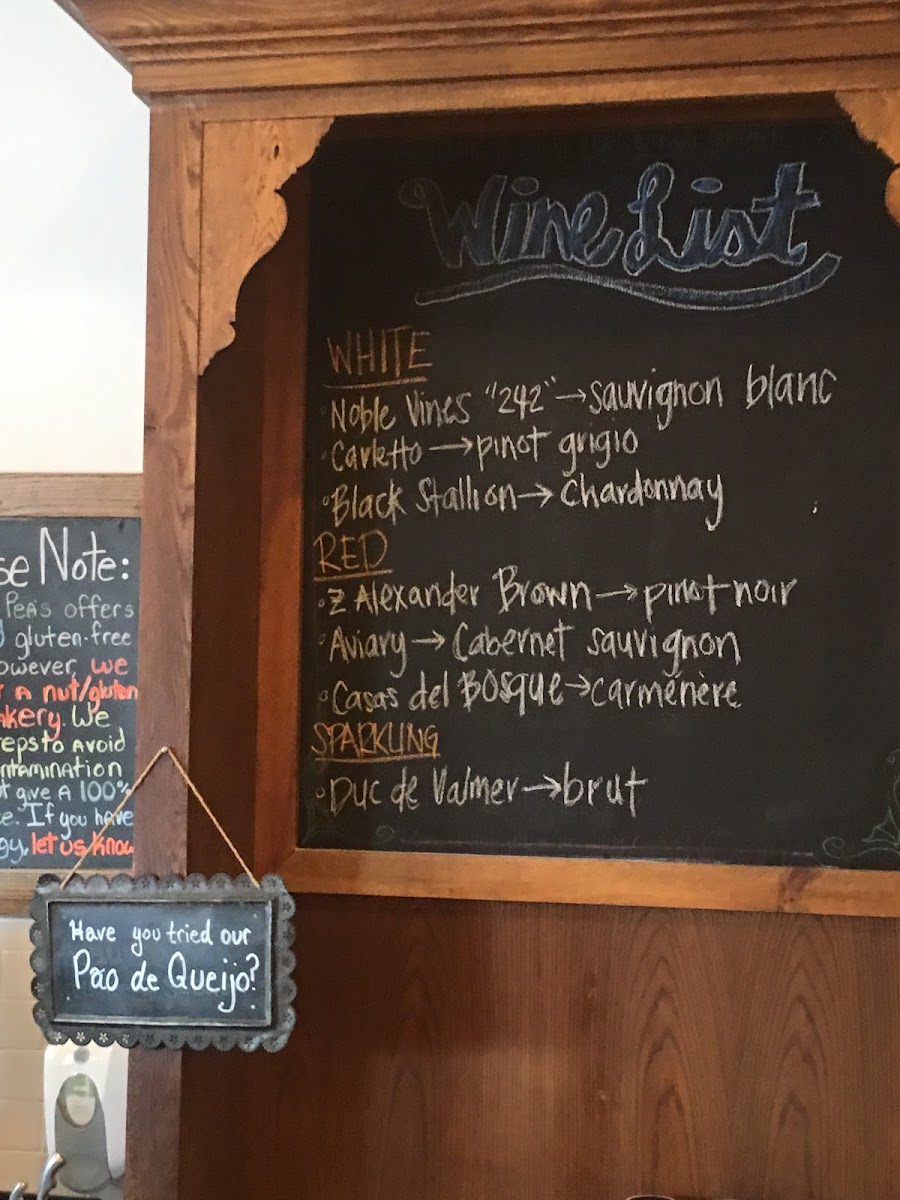 Wine List
WHITE
Noble Vines "242" → sauvignon blanc
Carletto → pinot grigio
Black Stallion → Chardonnay
RED
Z Alexander Brown → pinot noir
Aviary → Cabernet sauvignon
Casas del BOSQUE → carménère
SPARKLING
Duc de Valmer → brut
Note:
Peas offers
gluten-free
we
A nut/gluten
We
to avoid
give A 100%
If you have
let us know
Have you tried our
Pão de Queijo?